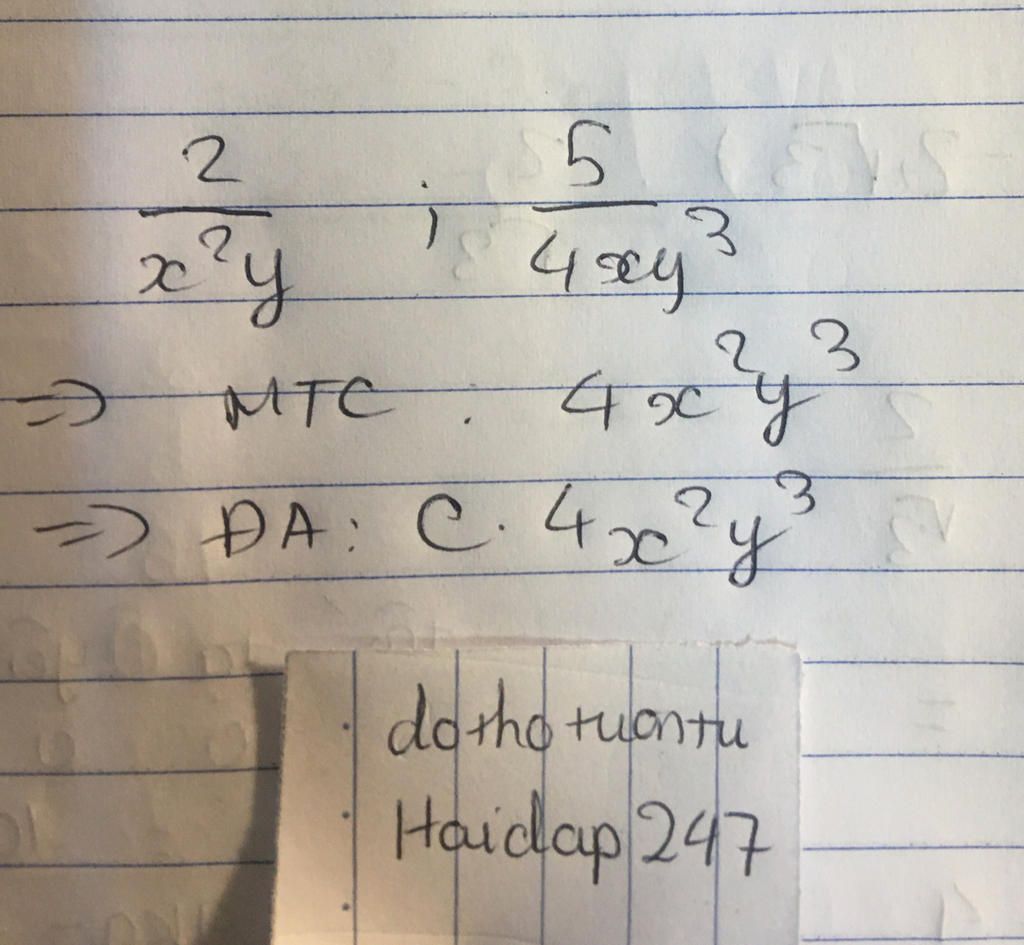 2/x²y ; 5/4xy³
=> MTC : 4x²y³
=> ĐA: C. 4x²y³
dothotuantu
Haidap247